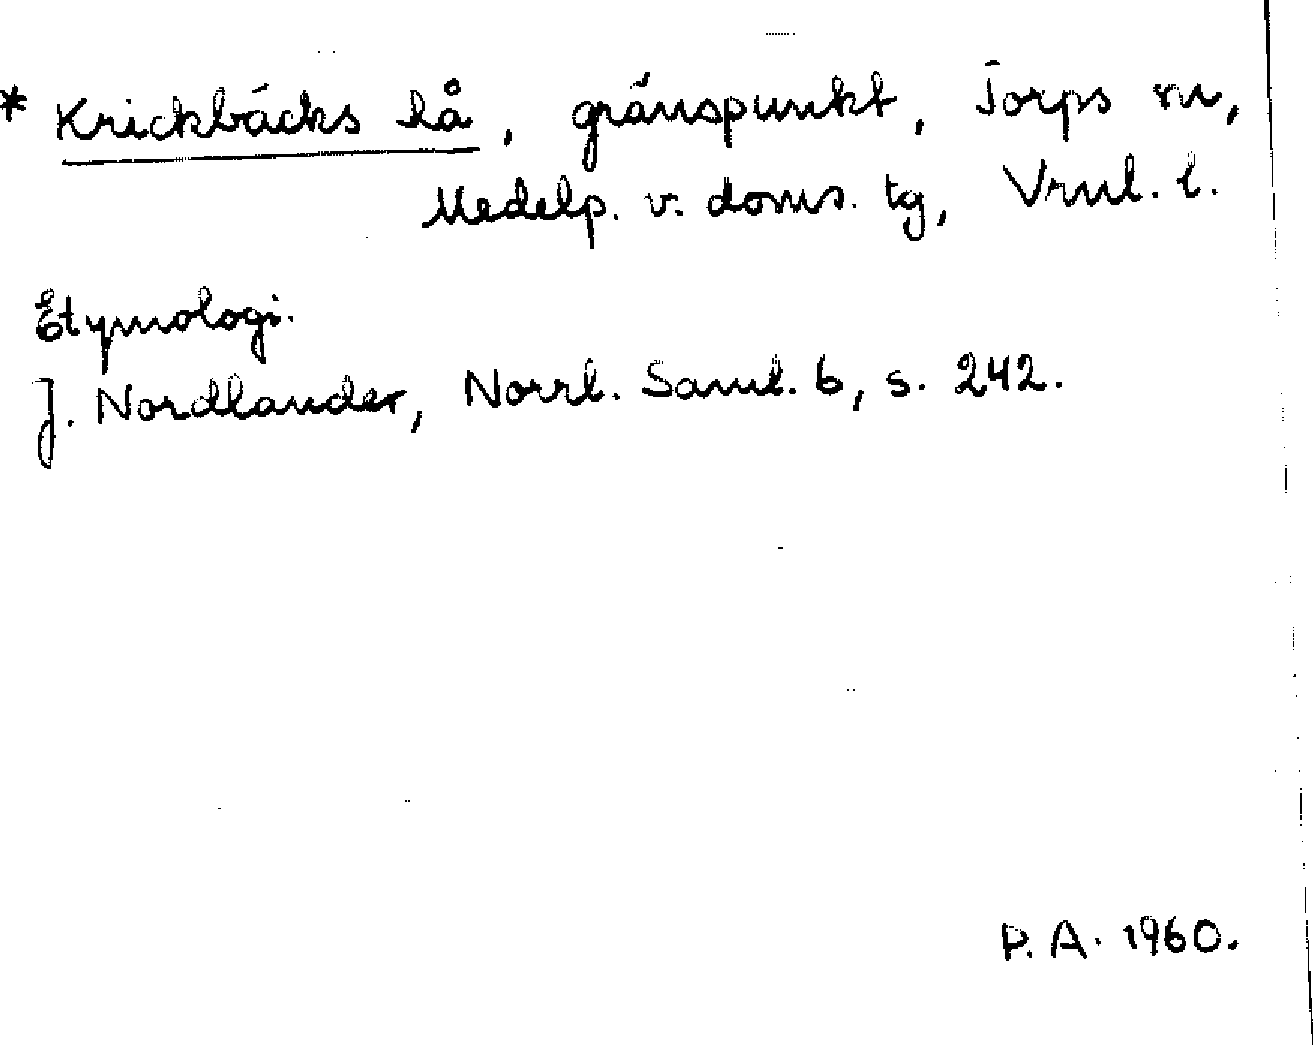 * Krickbäcks hå, gränspunkt, Torps sn,
Medelp. v. doms. tg, Vrnl. l.
Etymologi.
J. Nordlander, Norrl. Saml. 6, s. 242.
P. A. 1960.